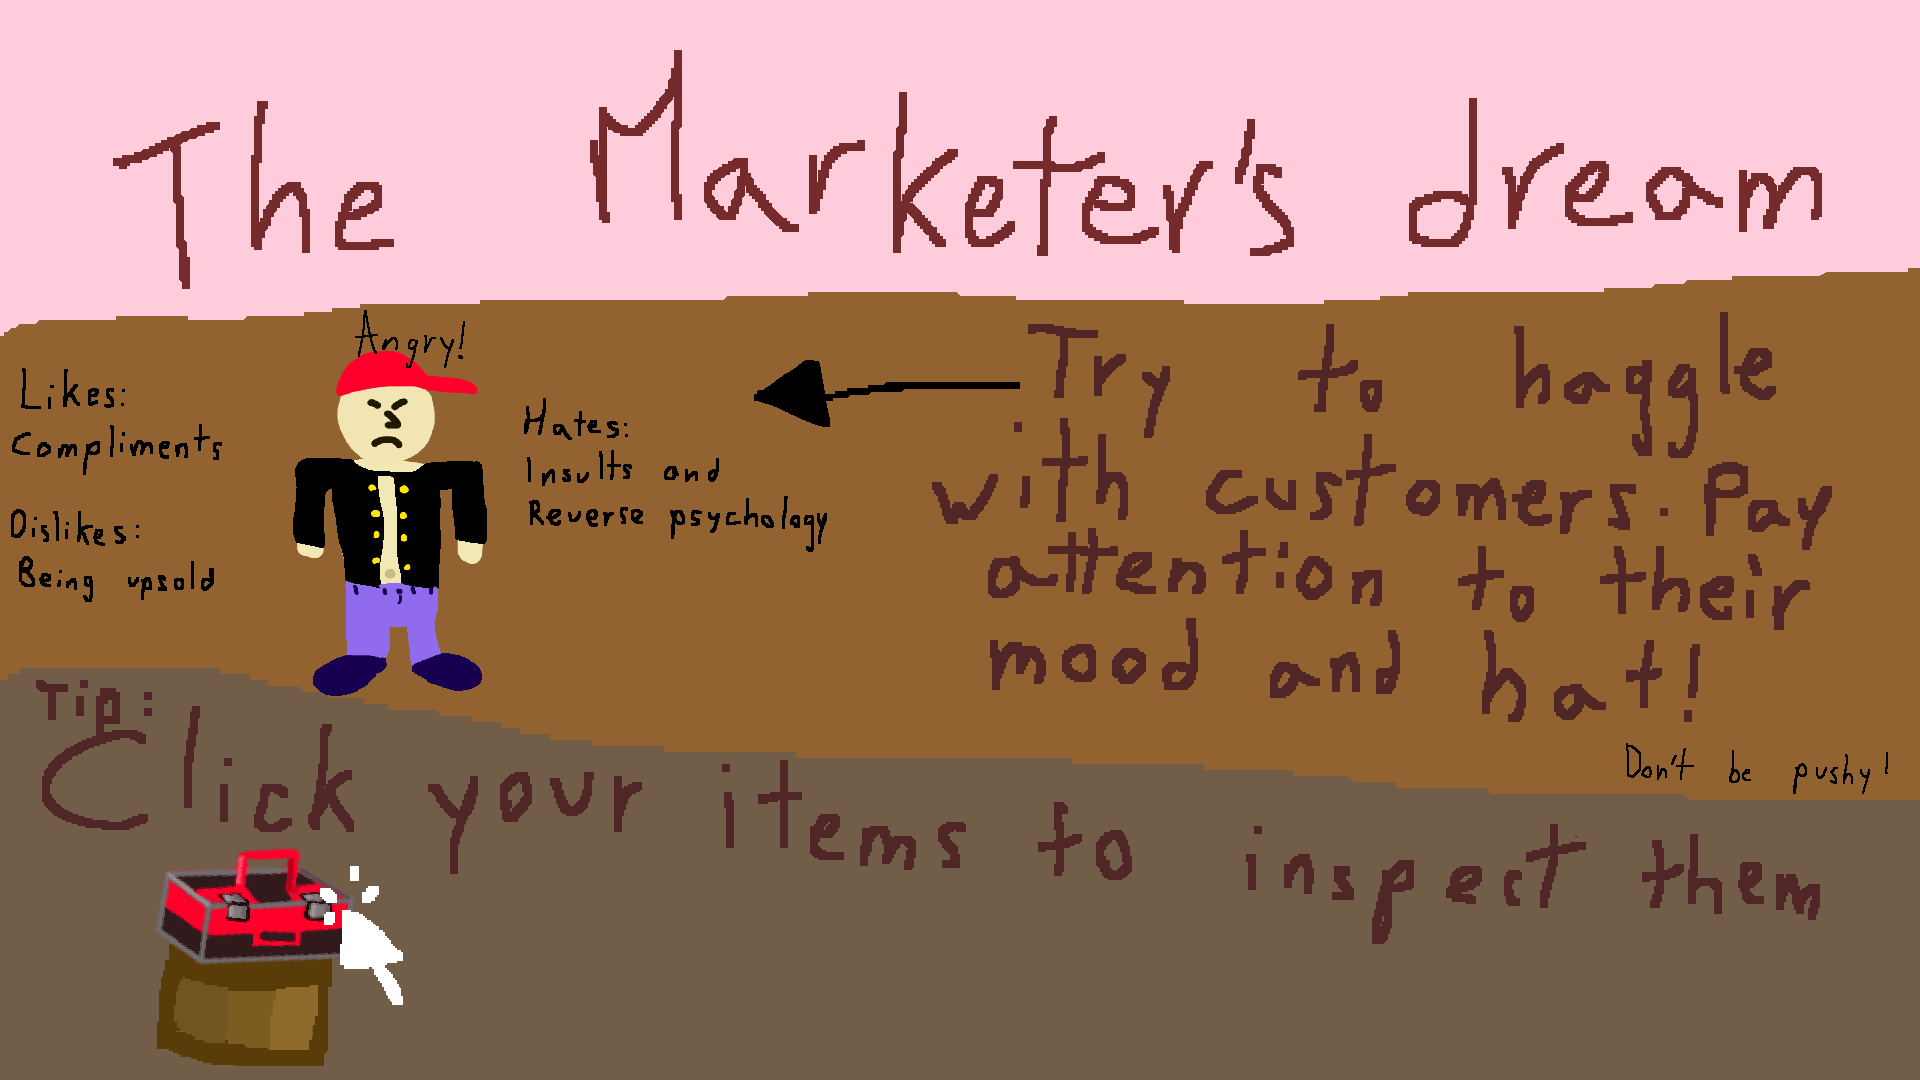 The Marketer's dream
Angry!
Likes:
Compliments
Dislikes:
Being upsold
Hates:
Insults and
Reverse psychology
Try to haggle
with customers. Pay
attention to their
mood and hat!
Don't be pushy!
Tip:
Click your items to inspect them